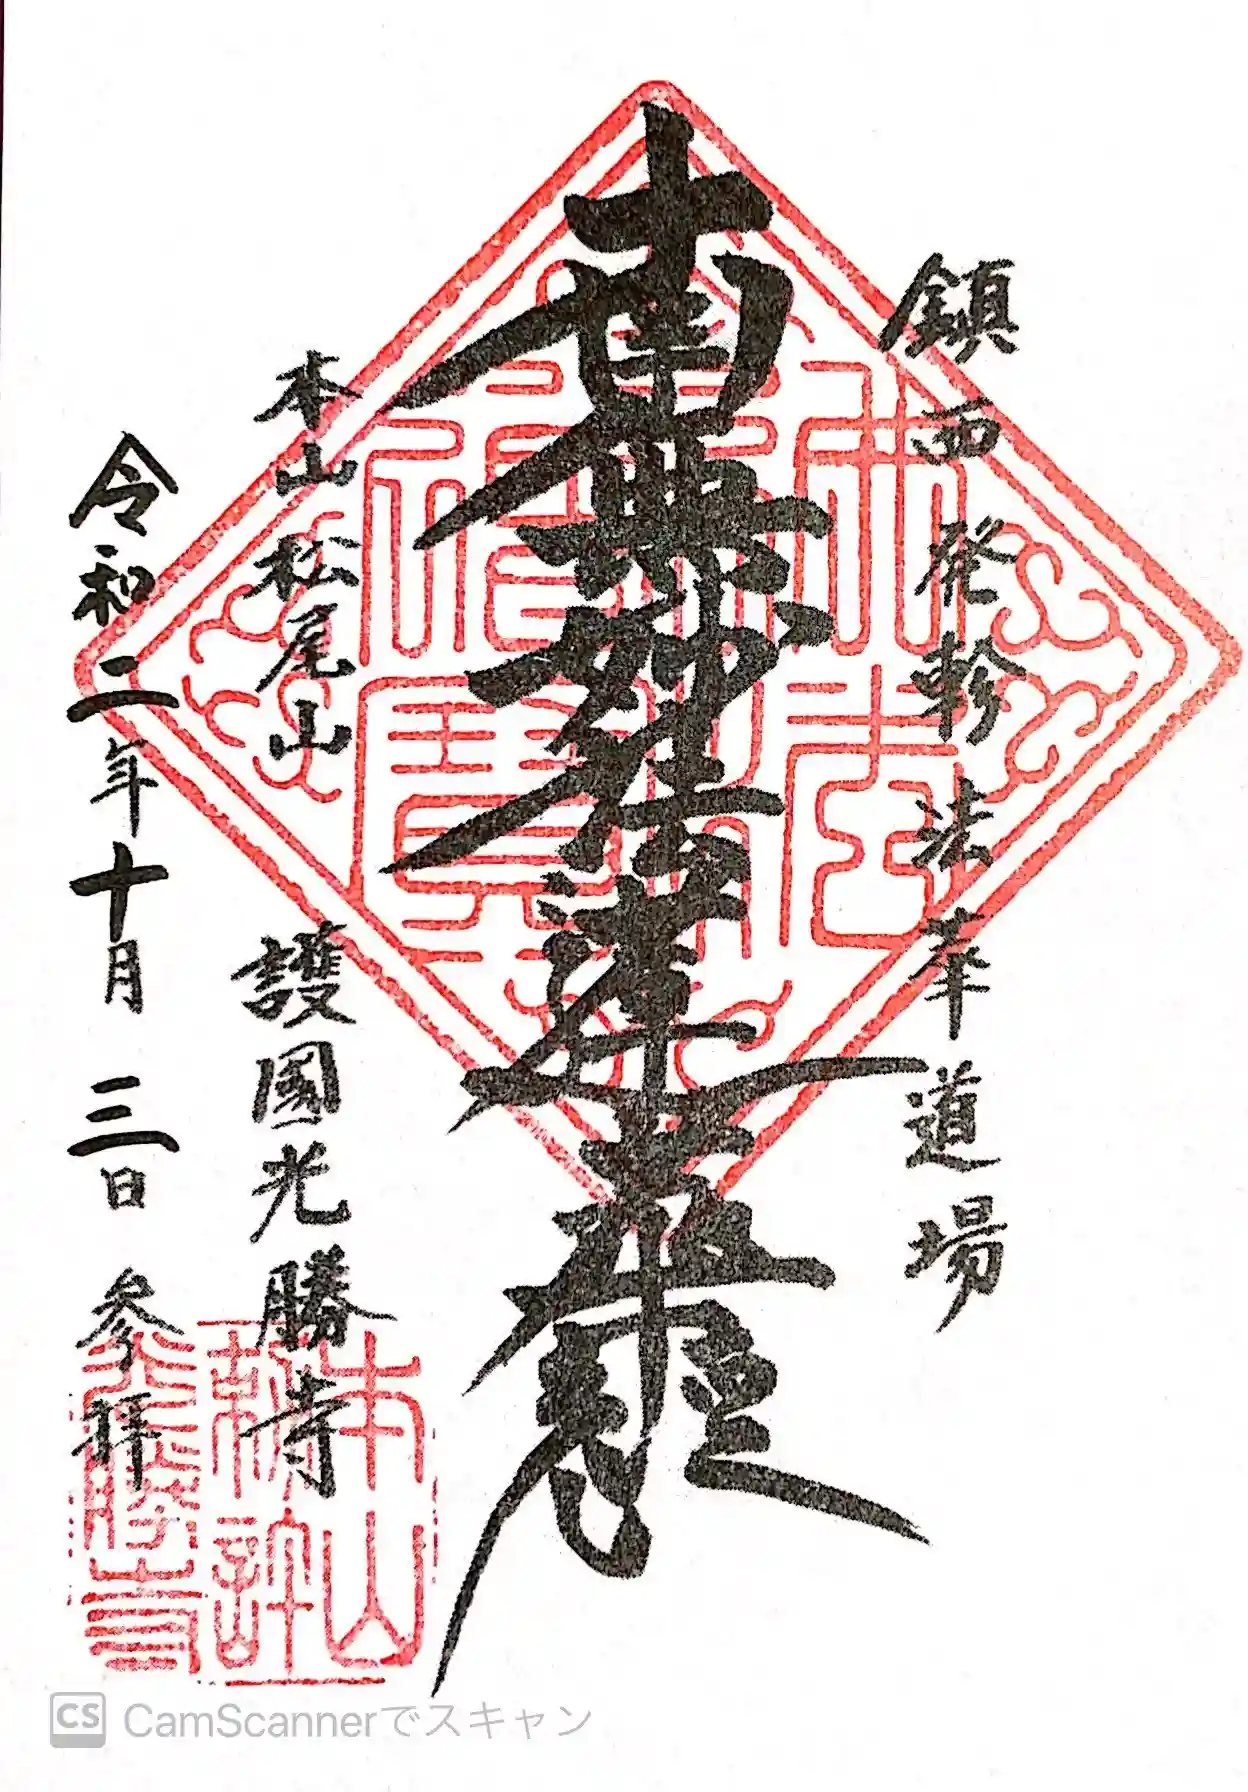 鎮西発軫法華道場
南無妙法蓮華経
本山松尾山
護國光勝寺
令和二年十月三日 参拝
本山
光勝寺
CS CamScannerでスキャン